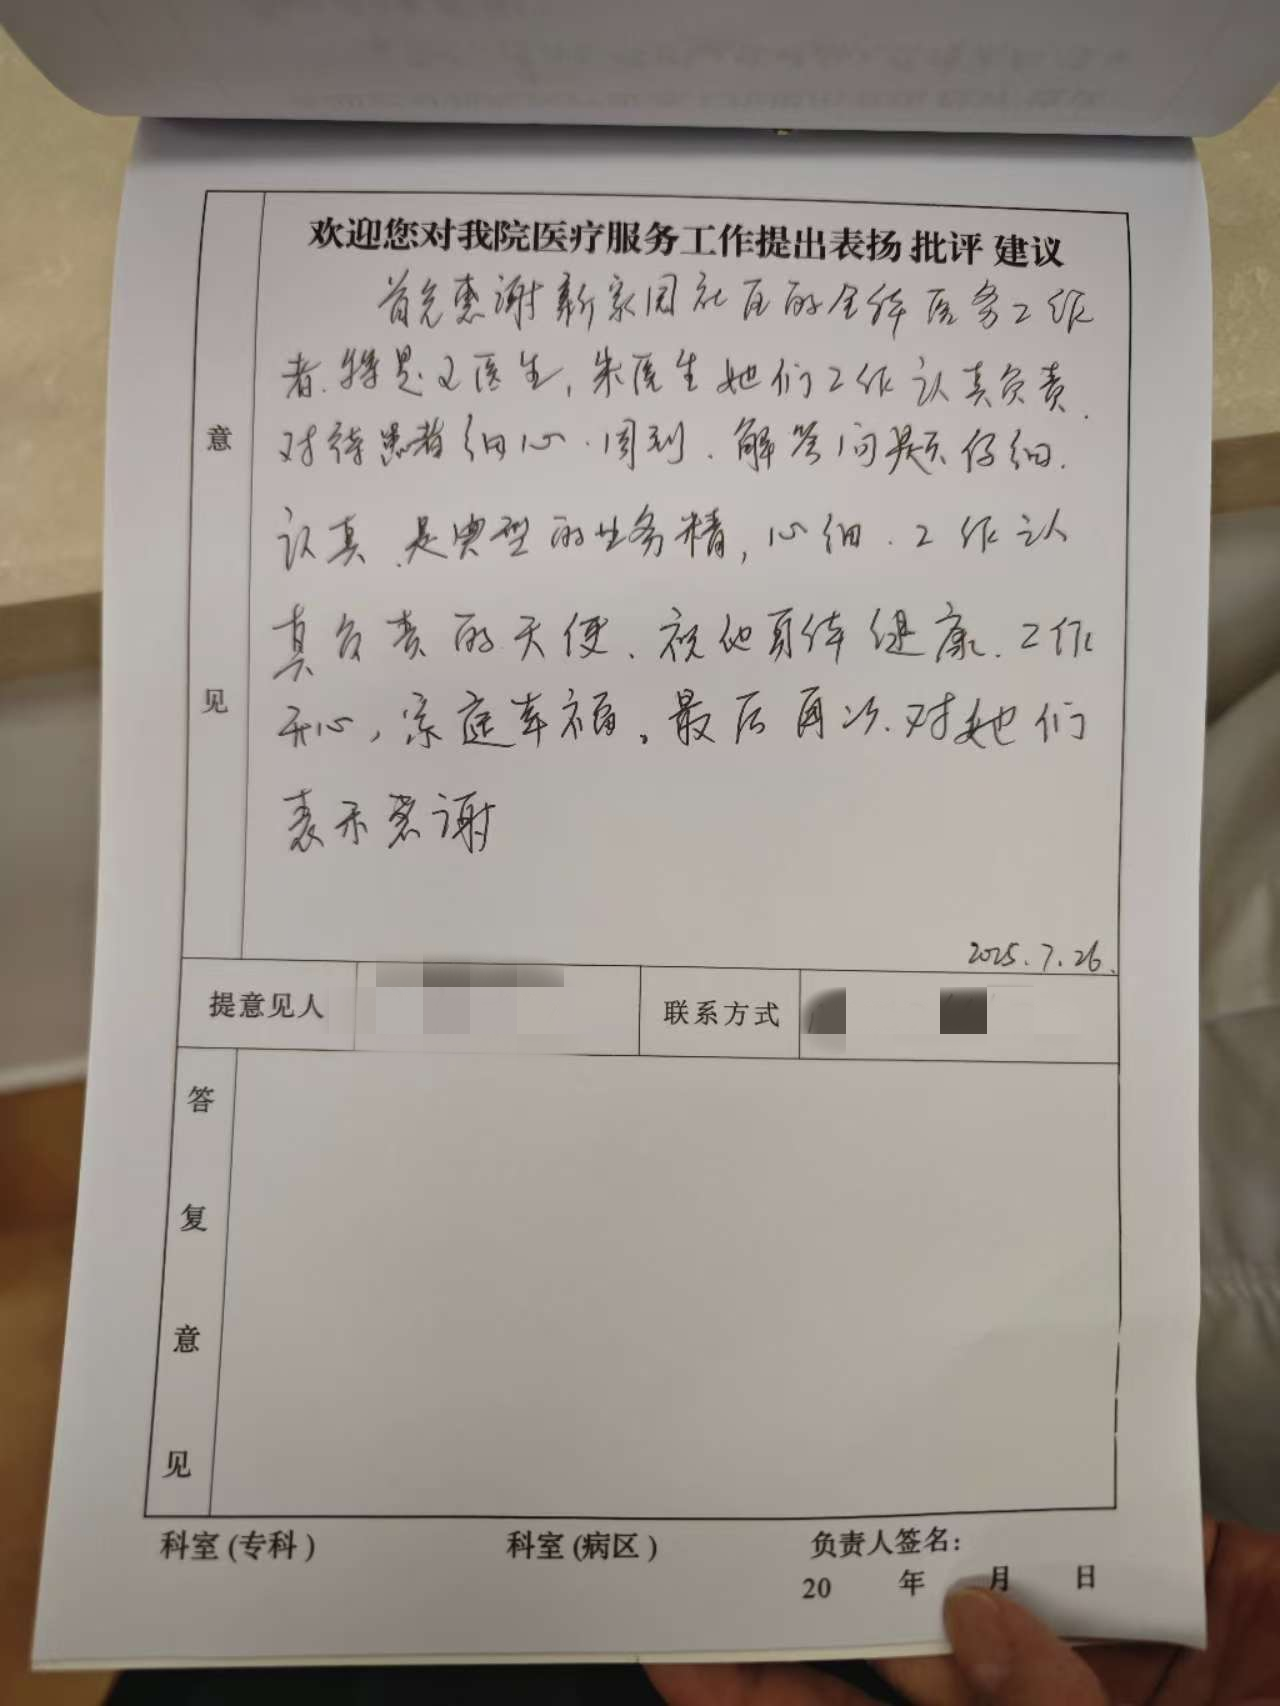 欢迎您对我院医疗服务工作提出表扬 批评 建议
首先感谢新家园社区的全体医务工作
者.特是文医生,朱医生她们工作认真负责.
对待患者细心.周到.解答问题仔细.
认真.是典型的业务精,心细.工作认
真负责的天使.祝他身体健康.工作
开心,家庭幸福。最后再次对她们
表示感谢
2025.7.26.
意
见
提意见人
联系方式
答
复
意
见
科室(专科) 科室(病区) 负责人签名:
20 年 月 日